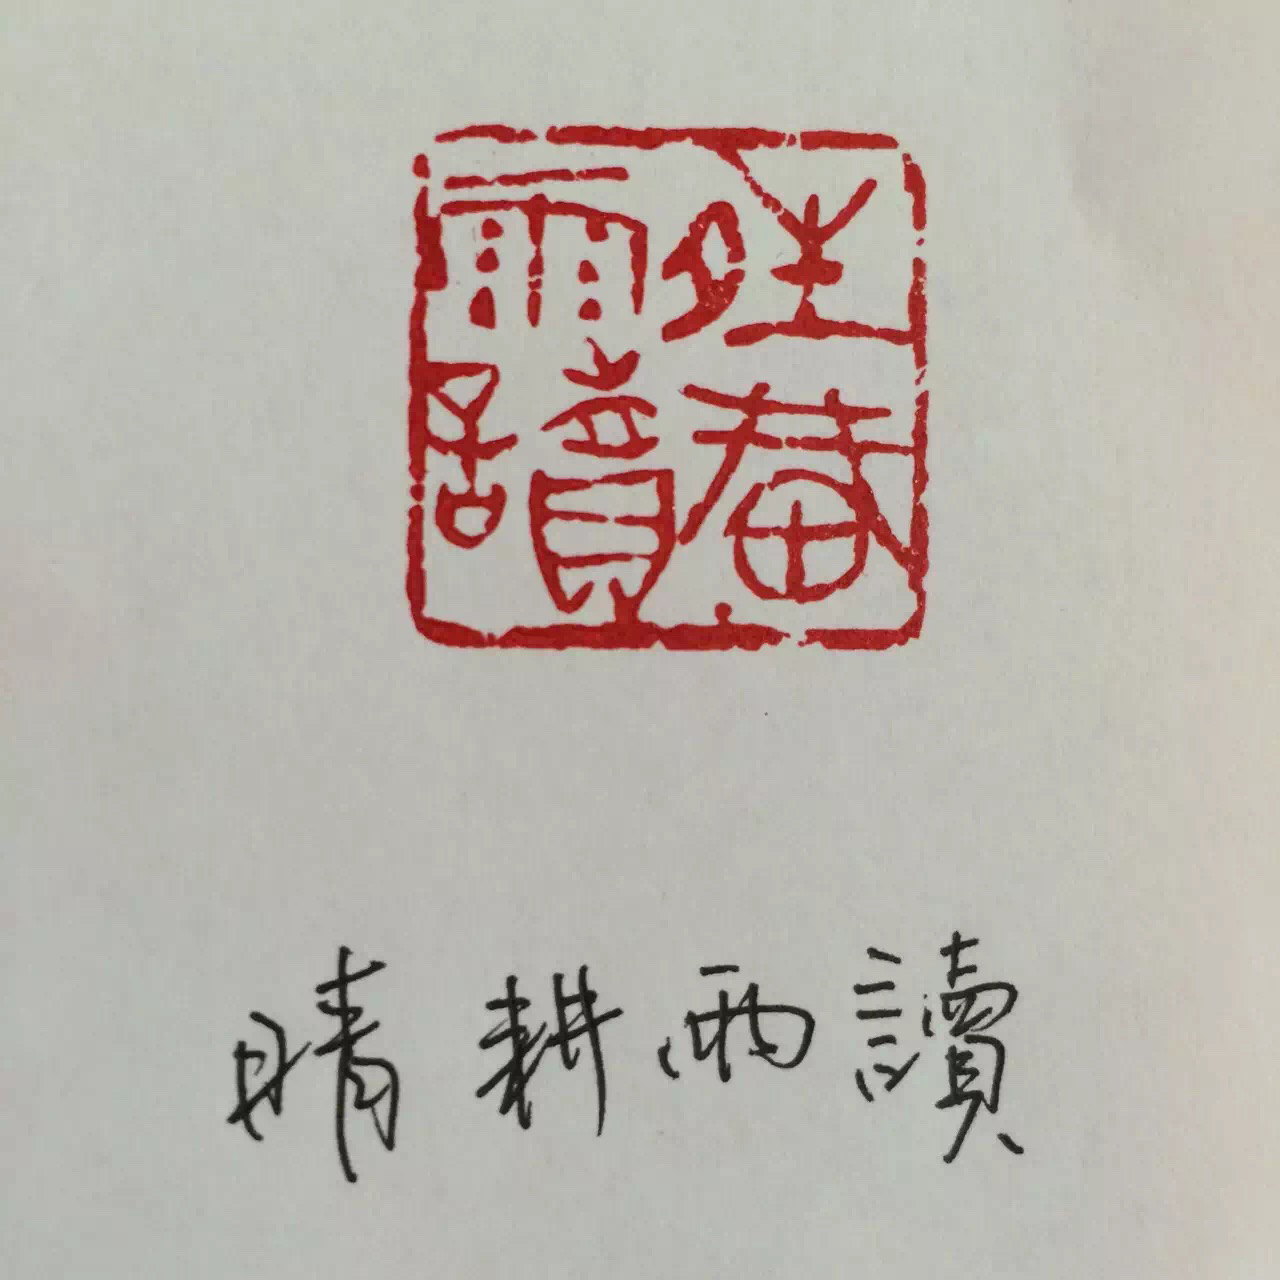 晴耕雨讀
晴耕雨讀